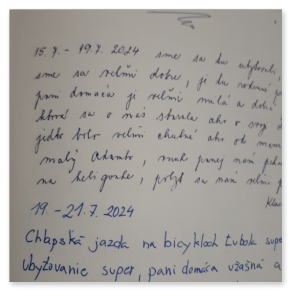 15.7. - 19.7. 2024 sme sa tu ubytovali,
sme sa veľmi dobre, je tu rodinné
pani domáca je veľmi milá a dobrá
ktorá sa o nás starala ako o svoj
jedlo bolo veľmi chutné ako od mamy
malý Adamko, nám
na heligonke, pobyt sa nám veľmi
19. - 21.7. 2024
Chlapská jazda na bicykloch tubola super
Ubytovanie super, pani domáca úžasná a